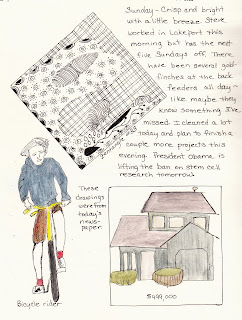 Sunday - Crisp and bright
with a little breeze. Steve
worked in Lakeport this
morning but has the next
five Sundays off. There
have been several gold-
finches at the back
feeders all day -
like maybe they
know something I've
missed. I cleaned a lot
today and plan to finish a
couple more projects this
evening. President Obama is
lifting the ban on stem cell
research tomorrow.
These
drawings
were from
today's
news-
paper.
Bicycle rider
$499,000